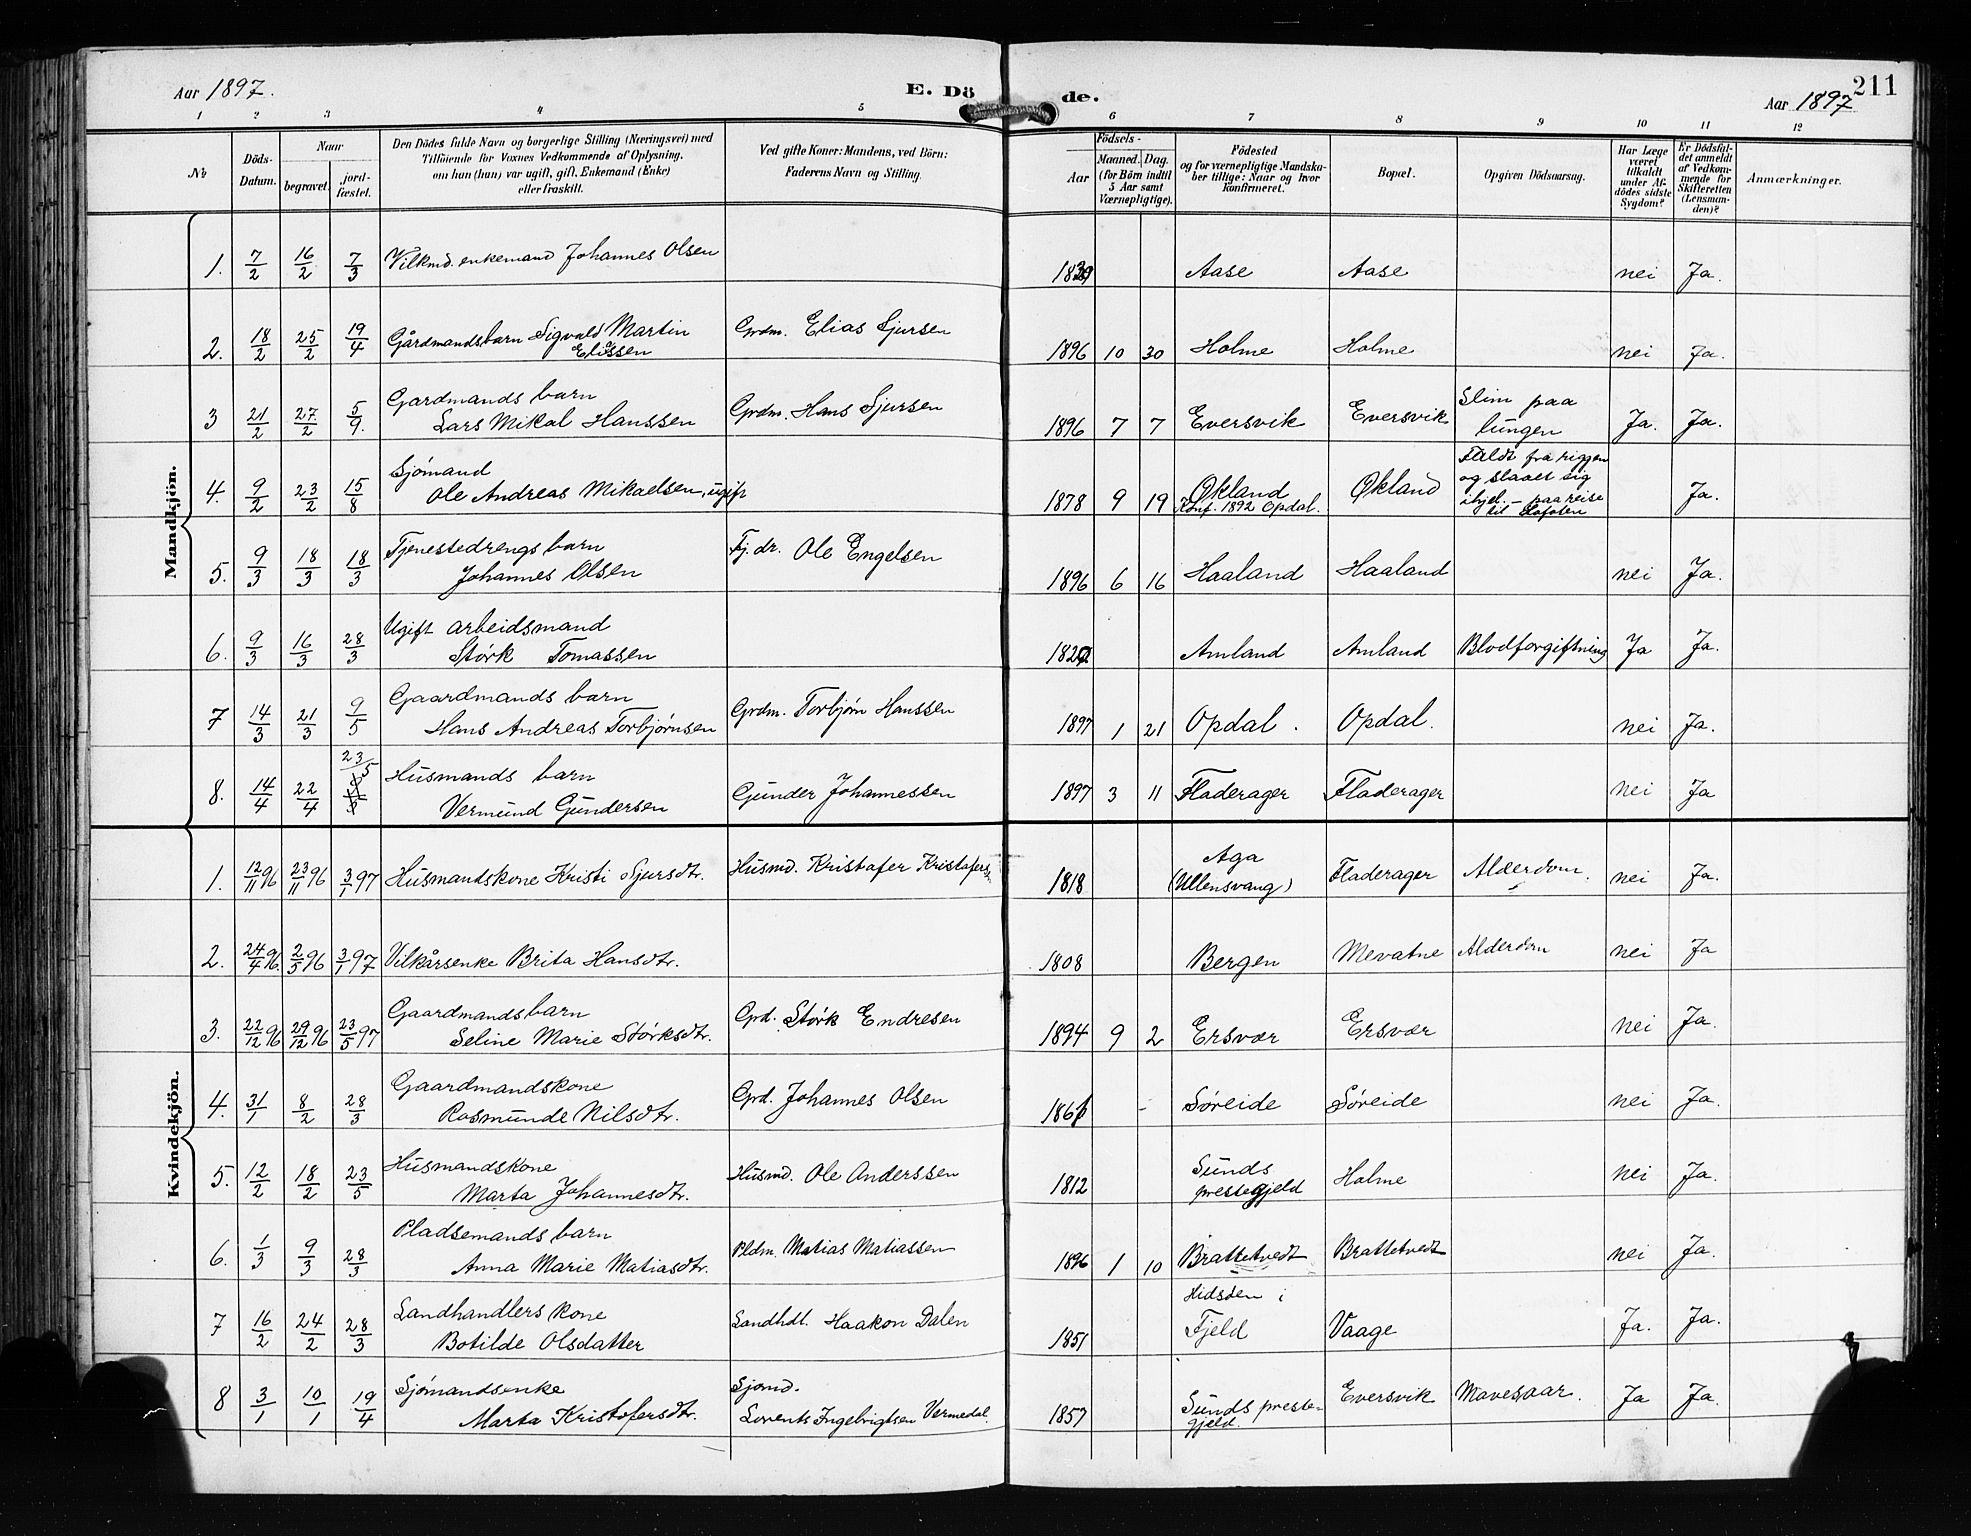 Aar 1897. E. Dö de. Aar 1897 211
1 2 3 4 5 6 7 8 9 10 11 12
№ Döds-Datum. Naar begravet. jord-fæstet. Den Dödes fulde Navn og borgerlige Stilling (Næringsvei) med Tilföiende for Voxnes Vedkommende af Oplysning, om han (hun) var ugift, gift, Enkemand (Enke) eller fraskilt. Ved gifte Koner: Mandens, ved Börn: Faderens Navn og Stilling. Födsels- Aar Maaned. Dag. (for Börn indtil 5 Aar samt Værnepligtige). Födested og for værnepligtige Mandska-ber tillige: Naar og hvor konfirmeret. Bopæl. Opgiven Dödsaarsag. Har Læge været tilkaldt under Af-dödes sidste Sygdom? Er Dödsfal-det anmeldt af Vedkom-mende for Skifteretten (Lensman-den)? Anmærkninger.
Mandkjön.
1. 7/2 16/2 7/3 Vilkmd. enkemand Johannes Olsen 1839 Aase Aase nei Ja.
2. 18/2 25/2 19/4 Gårdmandsbarn Sigvald Martin Eliassen Grdm. Elias Sjursen 1896 10 30 Holme Holme nei Ja.
3 21/2 27/2 5/9. Gardmands barn Lars Mikal Hanssen Grdm. Hans Sjursen 1896 7 7 Eversvik Eversvik Slim paa lungen Ja. Ja.
4. 9/2 23/2 15/8 Sjömand Ole Andreas Mikaelsen, ugift 1878 9 19 Økland Konf. 1892 Opdal. Økland Faldt fra riggen og slaaet sig ihjel. – paa reise til Lofoten Ja.
5. 9/3 18/3 18/3 Tjenestedrengs barn Johannes Olsen Tj.dr. Ole Engelsen 1896 6 16 Haaland Haaland nei Ja.
6. 9/3 16/3 28/3 Ugift arbeidsmand Størk Tomassen 1829 Amland Amland Blodforgiftning Ja Ja.
7 14/3 21/3 9/5 Gaardmands barn Hans Andreas Torbjørnsen Grdm. Torbjørn Hanssen 1897 1 21 Opdal. Opdal. nei Ja.
8. 14/4 22/4 23/5 Husmands barn Vermund Gundersen Gunder Johannessen 1897 3 11 Fladerager Fladerager nei Ja
Kvindekjön.
1. 12/11 96 23/11 96 3/1 97 Husmandskone Kristi Sjursdtr. Husmd. Kristafer Kristafers. 1818 Aga (Ullensvang) Fladerager Alderdom. nei Ja.
2. 24/4 96. 2/5 96 3/1 97 Vilkårsenke Brita Hansdtr. 1808 Bergen Mevatne Alderdom nei Ja
3. 22/12 96 29/12 96 23/5 97 Gaardmandsbarn Seline Marie Størksdtr. Grd. Størk Endresen 1894 9 2 Ersvær Ersvær nei Ja.
4. 31/1 8/2 28/3 Gaardmandskone Rasmunde Nilsdtr. Grd. Johannes Olsen 1861 Søreide Søreide nei Ja.
5. 12/2 18/2 23/5 Husmandskone Marta Johannesdtr. Husmd. Ole Anderssen 1812 Sunds prestegjeld Holme nei Ja.
6. 1/3 9/3 28/3 Pladsemands barn Anna Marie Matiasdtr. Pldm. Matias Matiassen 1896 1 10 Brattetvedt Brattetvedt nei Ja.
7 16/2 24/2 28/3 Landhandlers kone Botilde Olsdatter Landhdl. Haakon Dalen 1851 i Fjeld Vaage Ja. Ja.
8 3/1 10/1 19/4 Sjömandsenke Marta Kristofersdtr. Sjomd. Lorents Ingebrigtsen Vermedal. 1857 Sunds preste-gjeld. Eversvik Mavesaar. Ja Ja.